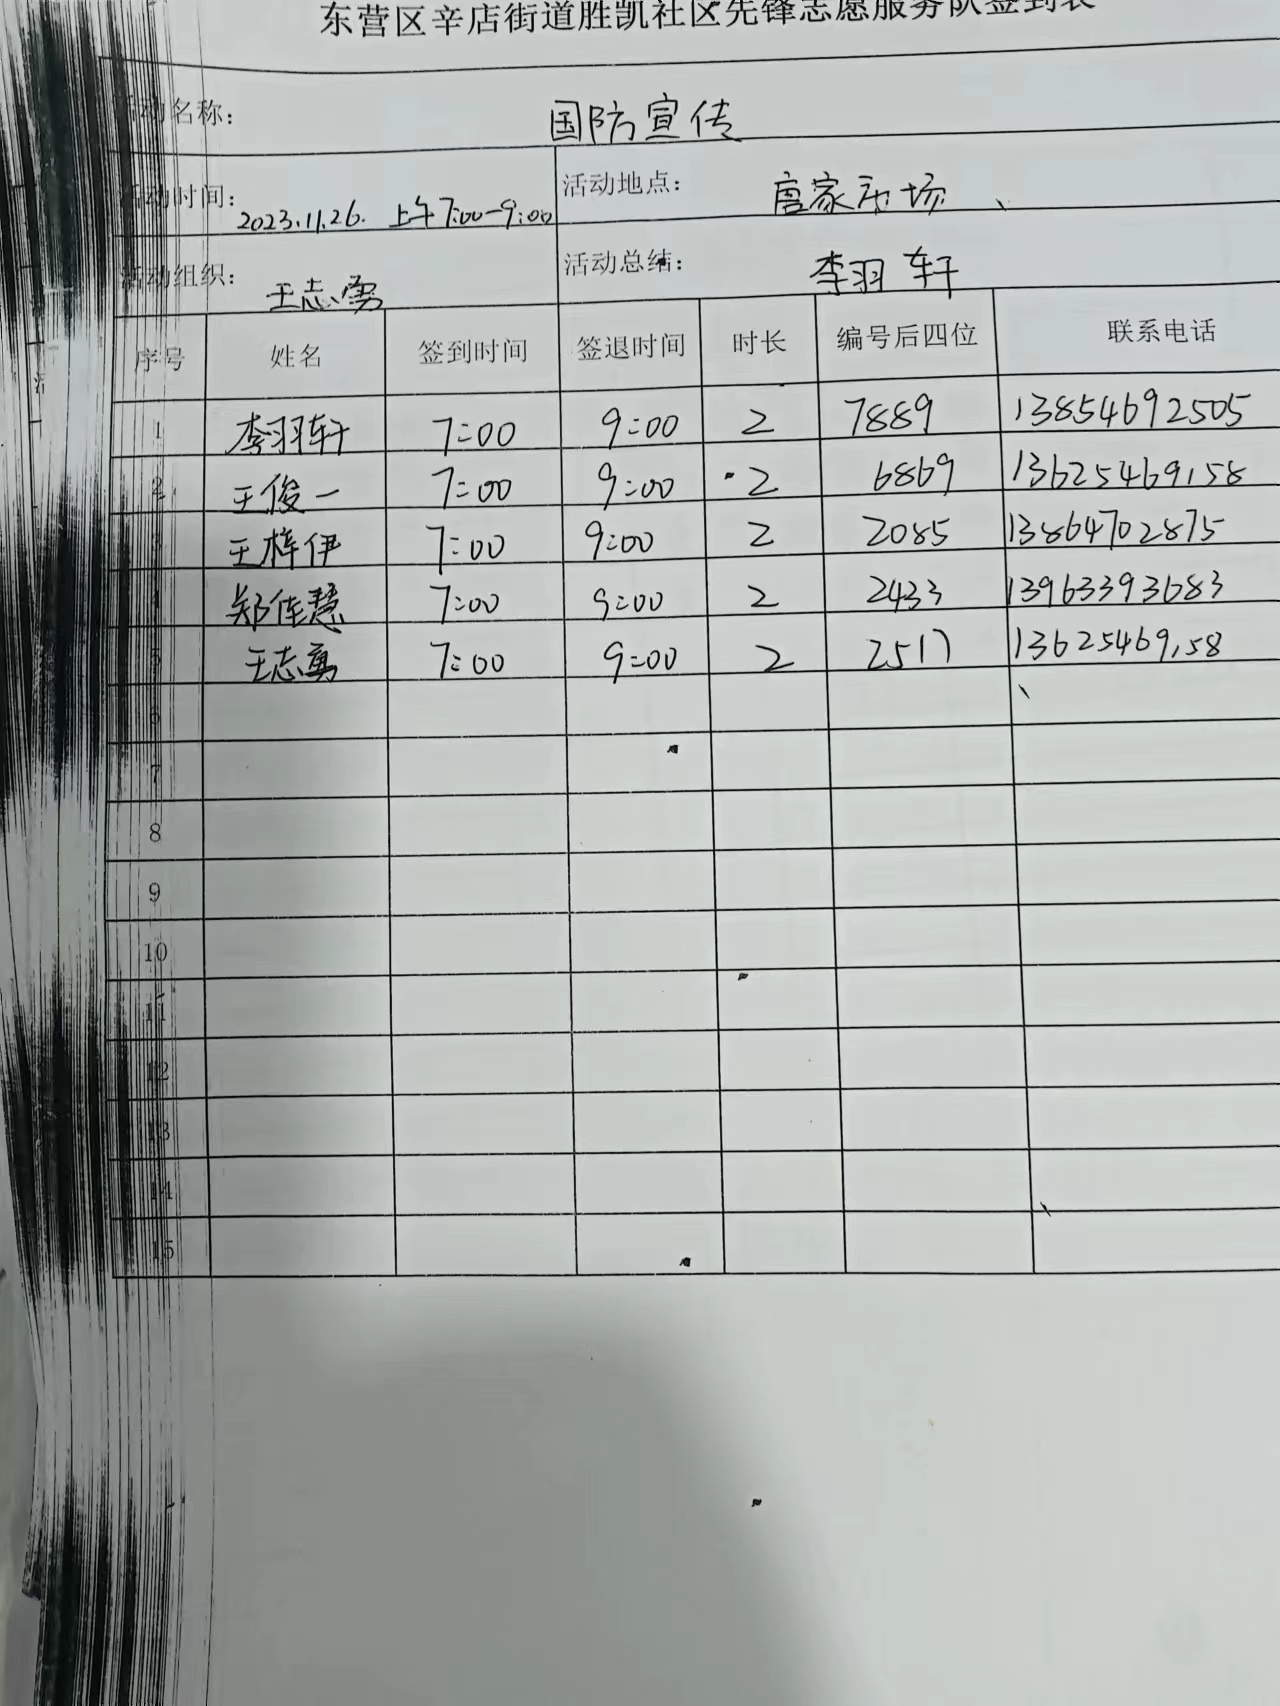 东营区辛店街道胜凯社区先锋志愿服务队签到表
活动名称： 国防宣传
活动时间： 2023.11.26. 上午7:00-9:00 活动地点： 唐家市场
活动组织： 王志勇 活动总结： 李羽轩
序号 姓名 签到时间 签退时间 时长 编号后四位 联系电话
1 李羽轩 7:00 9:00 2 7889 13854692505
2 王俊一 7:00 9:00 2 6869 13625469158
3 王梓伊 7:00 9:00 2 2085 13864702875
4 郑佳慧 7:00 9:00 2 2433 13963393683
5 王志勇 7:00 9:00 2 2517 13625469158
6
7
8
9
10
11
12
13
14
15